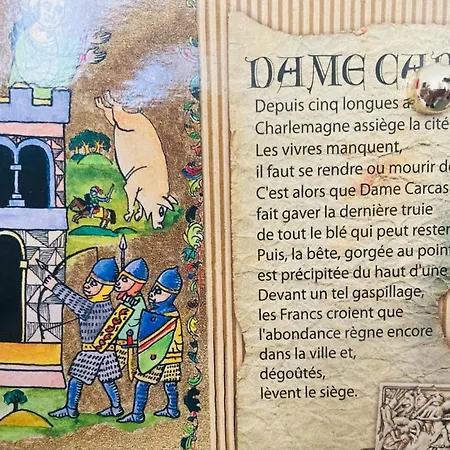 DAME CA
Depuis cinq longues a
Charlemagne assiège la cité
Les vivres manquent,
il faut se rendre ou mourir de
C'est alors que Dame Carcas
fait gaver la dernière truie
de tout le blé qui peut rester
Puis, la bête, gorgée au point
est précipitée du haut d'une
Devant un tel gaspillage,
les Francs croient que
l'abondance règne encore
dans la ville et,
dégoûtés,
lèvent le siège.